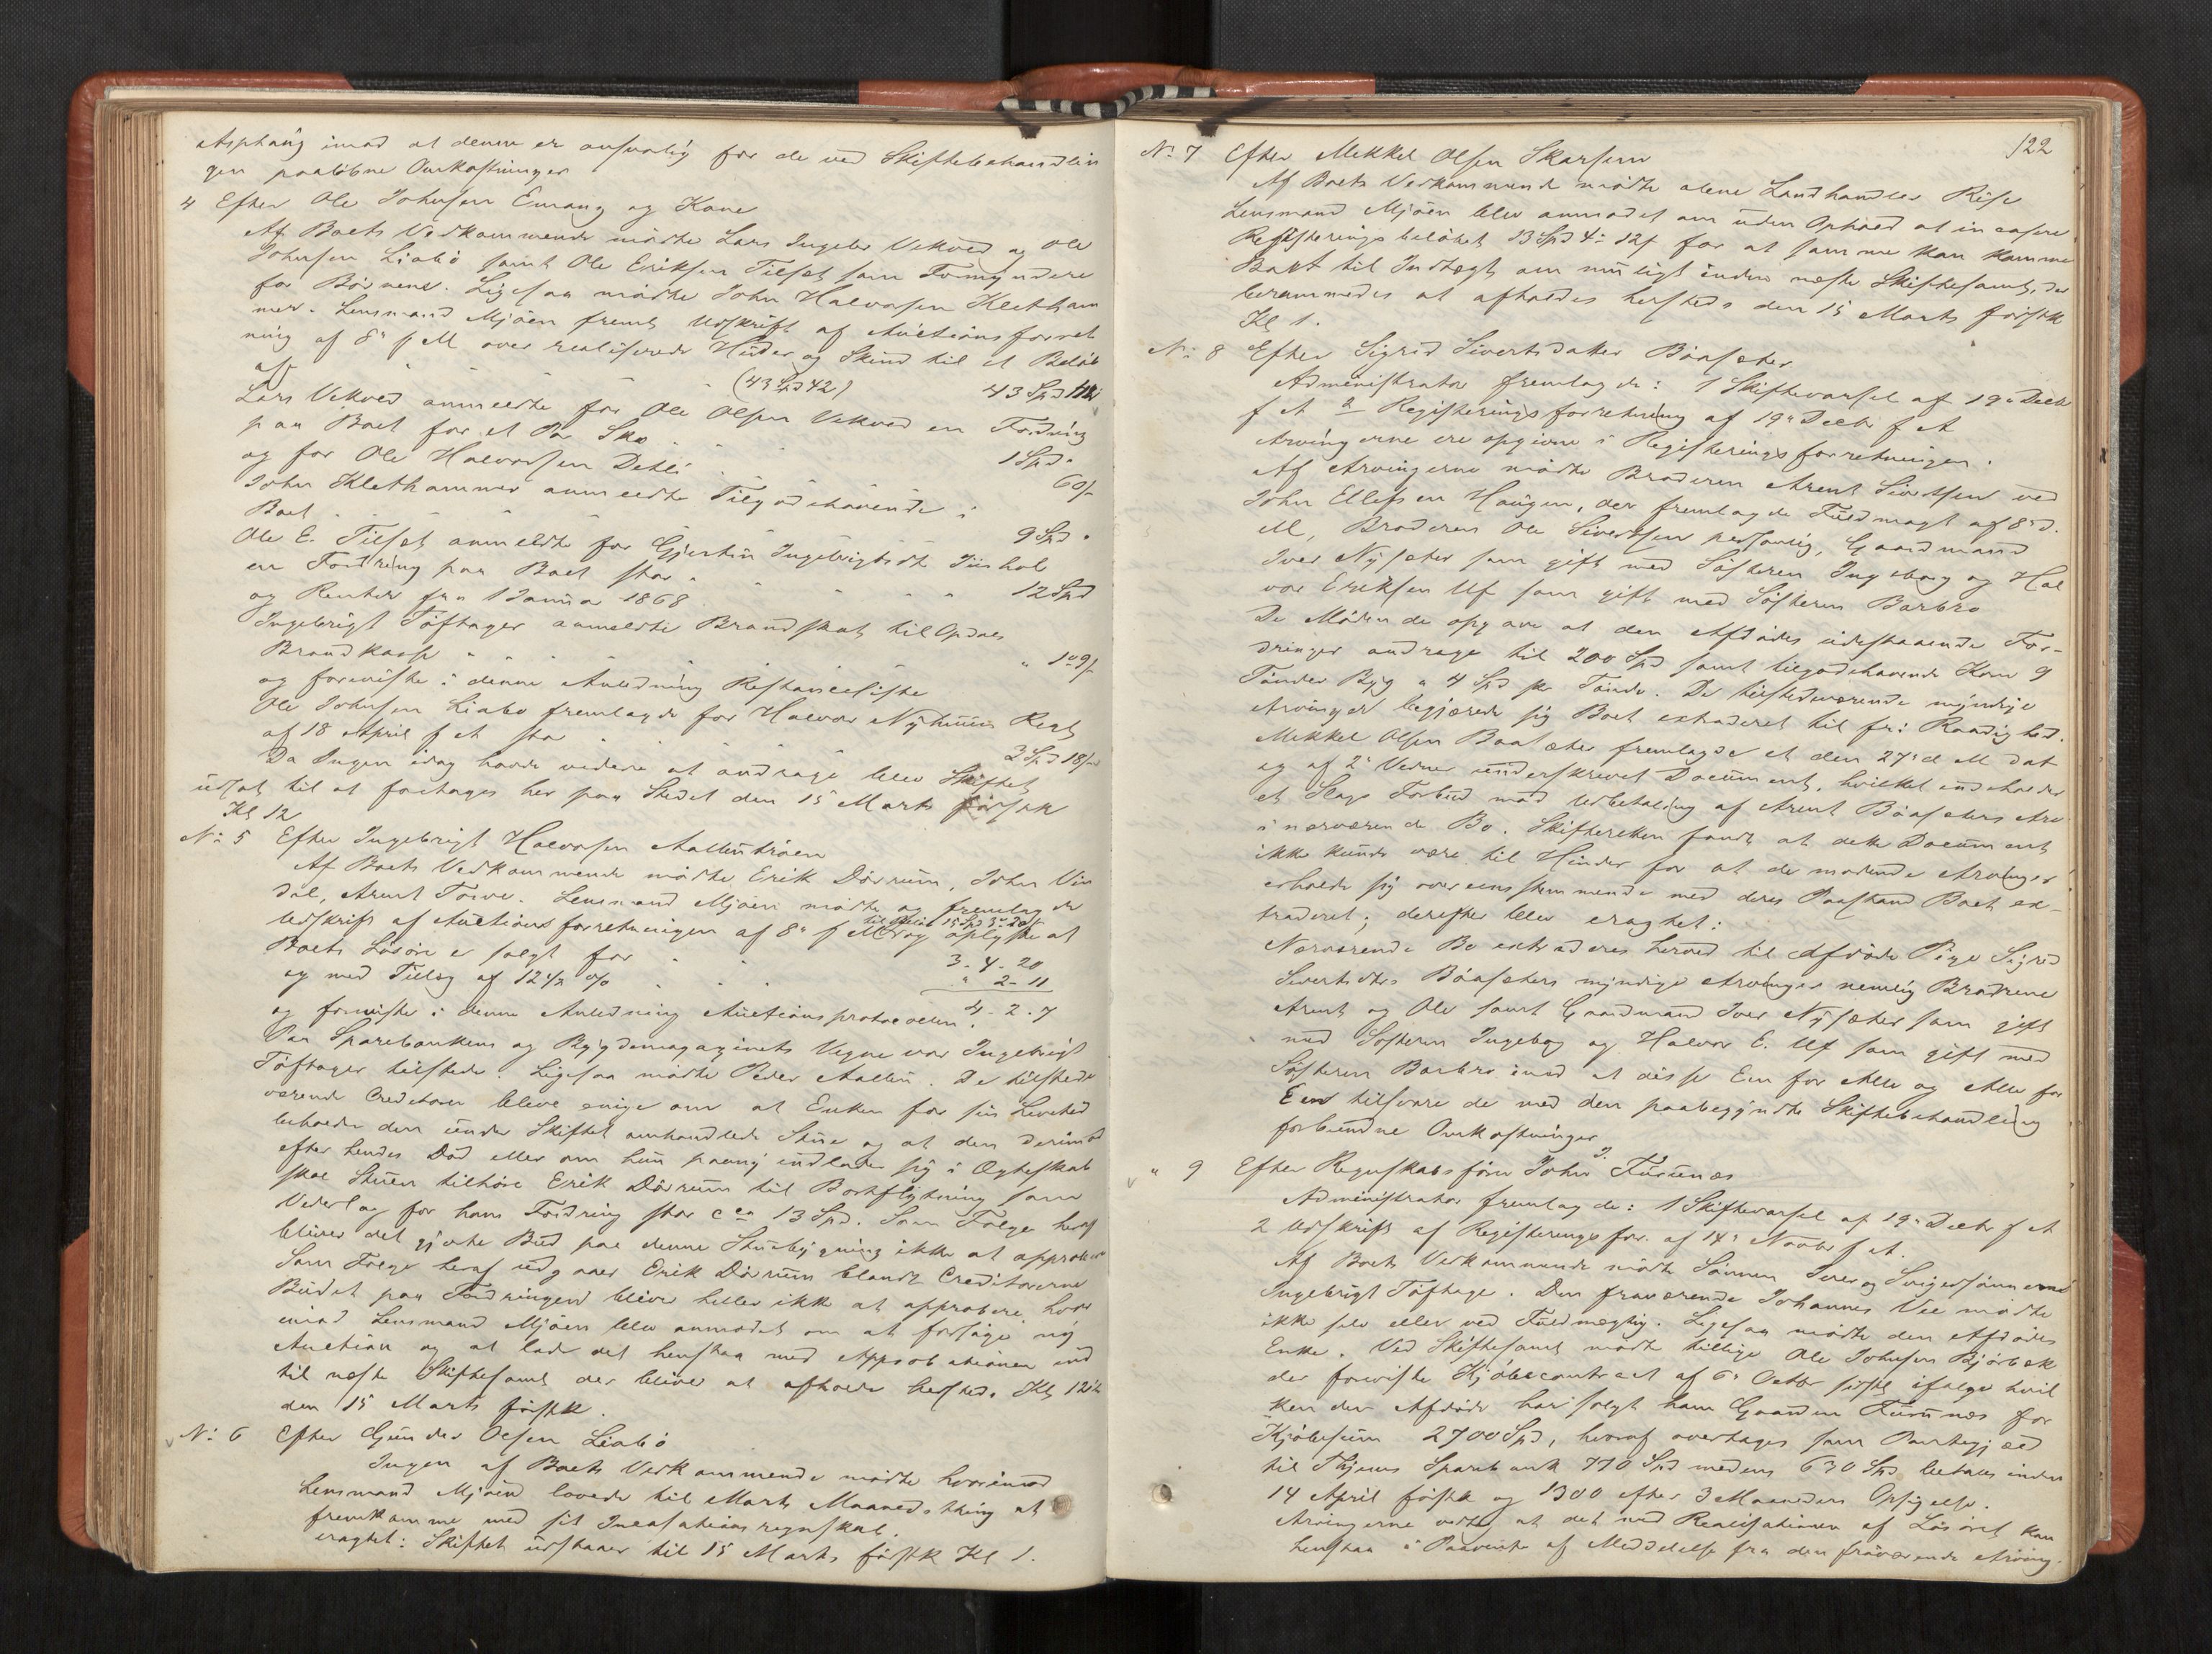 Asphaug imod at denne er ansvarlig for de ved Skiftebehandlin
gen paaløbne Omkostninger
4 Efter Ole Johnsen Emaug og Kone
Af Boets Vedkommende mødte Lars Ingebr Vekved og Ole
Johnsen Liabø samt Ole Eriksen Tilset som Formyndere
for Børnene. Ligesaa mødte John Halvorsen Kletham
mer. Lensmand Mjøen freml Udskrift af Auctionsforret
ning af 8de f M over realiserede Huder og Skind til et Beløb
af (43 Spd 42) 43 Spd
Lars Vekved anmeldte for Ole Olsen Vekved en Fordring
paa Boet for et Par Sko 1 Spd "
og for Ole Halvorsen Detli 60 s
John Klethammer anmeldte Tilgodehavende i
Boet 9 Spd "
Ole E. Tilset anmeldte for Gjertru Ingebrigtsdtr
en Fordring paa Boet stor 12 Spd
og Renter fra 1 Januar 1868
Ingebrigt Tøftager anmeldte Brandskat til Opdals
Brandkasse " 1 " 9 s
og foreviste i denne Anledning Restanceliste
Ole Johnsen Liabø fremlagde for Halvor Nyhuus Regt
af 18 April f A stor 2 Spd 18 s
Da Ingen idag havde videre at andrage blev Skiftet
udsat til at foretages her paa Stedet den 15 Marts førstk
Kl 12
No 5 Efter Ingebrigt Halvorsen Aalbutrøen
Af Boets Vedkommende mødte Erik Dørrum, John Vin
dal, Arent Torve. Lensmand Mjøen mødte og fremlagde
Udskrift af Auctionsforretningen af 8de f M og oplyste at
Boets Løsøre er solgt for 3 - 4 - 20
og med Tillæg af 12 1/2 % " 2 - 11
4 - 2 - 7
og foreviste i denne Anledning Auctionsprotocollen.
Paa Sparebankens og Bygdemagazinets Vegne var Ingebrigt
Tøftager tilstede. Ligesaa mødte Peder Aalbu. De tilstede
værende Creditorer bleve enige om at Enken for sin Levetid
beholder den under Skiftet omhandlede Stue og at den derimod
efter hendes Død eller om hun paany indlader sig i Ægteskab
skal Stuen tilhøre Erik Dørrum til Bortflytning som
Vederlag for hans Fordring stor cca 13 Spd. Som Følge heraf
bliver det gjorte Bud paa denne Stuebygning ikke at approbere
Som Følge heraf udgaaer Erik Dørrum blandt Creditorerne
Budet paa Fordringerne bliver heller ikke at approbere hvor
imod Lensmand Mjøen blev anmodet om at forsøge ny
Auction og at lade det henstaa med Approbationen ind
til næste Skiftesamt der bliver at afholde hersteds Kl 12 1/2
den 15 Marts førstk.
No 6 Efter Gunder Olsen Liabø
Ingen af Boets Vedkommende mødte hvorimod
Lensmand Mjøen lovede til Marts Maanedsthing at
fremkomme med sit Incasationsregnskab.
eragtet: Skiftet udstaaer til 15 Marts førstk Kl 1.
122
No 7 Efter Mekkel Olsen Skarsem
Af Boets Vedkommende mødte alene Landhandler Rise
Lensmand Mjøen blev anmodet om uden Ophold at incassere
Registeringsbeløbet 13 Spd 4 " 12 s for at samme kan komme
Boet til Indtægt om muligt inden næste Skiftesamt, der
berammedes at afholdes hersteds den 15 Marts førstk
Kl 1.
No 8 Efter Sigrid Sivertsdatter Böasæter
Administrator fremlagde: 1 Skiftevarsel af 19de Decbr
f A 2 Registeringsforretning af 19de Decbr f A
Arvingerne ere opgivne i Registeringsforretningen.
Af Arvingerne mødte Broderen Arent Sivertsen ved
John Ellefsen Haugen, der fremlagde Fuldmagt af 8de d.
M, Broderen Ole Sivertsen personlig, Gaardmand
Iver Nysæter som gift med Søsteren Ingeborg og Hal
vor Eriksen Uf som gift med Søsteren Barbro
De Mødende opgave at den Afdødes udestaaende For-
dringer andrage til 200 Spd samt tilgodehavende Korn 9
Tønder Byg a 4 Spd pr Tønde. De tilstedeværende myndige
Arvinger begjærede sig Boet extraderet til fri Raadighed.
Mekkel Olsen Boasæter fremlagde et den 27de d M dat
og af 2de Vidner underskrevet Document, hvilket indeholder
et Slags Forbud mod Udbetaling af Arent Böasæters Arv
i nærværende Bo. Skifteretten fandt at dette Document
ikke kunde være til Hinder for at de mødende Arvinger
erholde sig overensstemmende med deres Paastand Boet ex-
traderet; derefter blev eragtet:
Nærværende Bo extraderes herved til Afdøde Pige Sigrid
Sivertsdtrs Böasæters myndige Arvinger nemlig Brødrene
Arent og Ole samt Gaardmand Iver Nysæter som gift
med Søsteren Ingeborg og Halvor E. Uf som gift med
Søsteren Barbro imod at disse Een for Alle og Alle for
Een tilsvare de med den paabegyndte Skiftebehandling
forbundne Omkostninger
" 9 Efter Regnskabsfører John J. Furunæs
Administrator fremlagde: 1 Skiftevarsel af 19de Decbr f A
2 Udskrift af Registeringsfor. af 14de Novbr f A.
Af Boets Vedkommende mødte Sønnen Iver og Svigersønnen
Ingebrigt Tøftage. Den fraværende Johannes Vee mødte
ikke selv eller ved Fuldmægtig. Ligesaa mødte den Afdødes
Enke. Ved Skiftesamt mødte tillige Ole Johnsen Bjørbæk
der foreviste Kjøbecontract af 6te Octbr sidstl ifølge hvil
ken den Afdøde har solgt ham Gaarden Furunæs for
Kjøbesum 2700 Spd, hvoraf overtages som Pantegjæld
til Thjems Sparebank 770 Spd medens 630 Spd betales inden
14 April førstk og 1300 efter 3 Maaneders Opsigelse.
Arvingerne vedtog at det med Realisationen af Løsøret kan
henstaa i Paavente af Meddelelse fra den fraværende Arving.